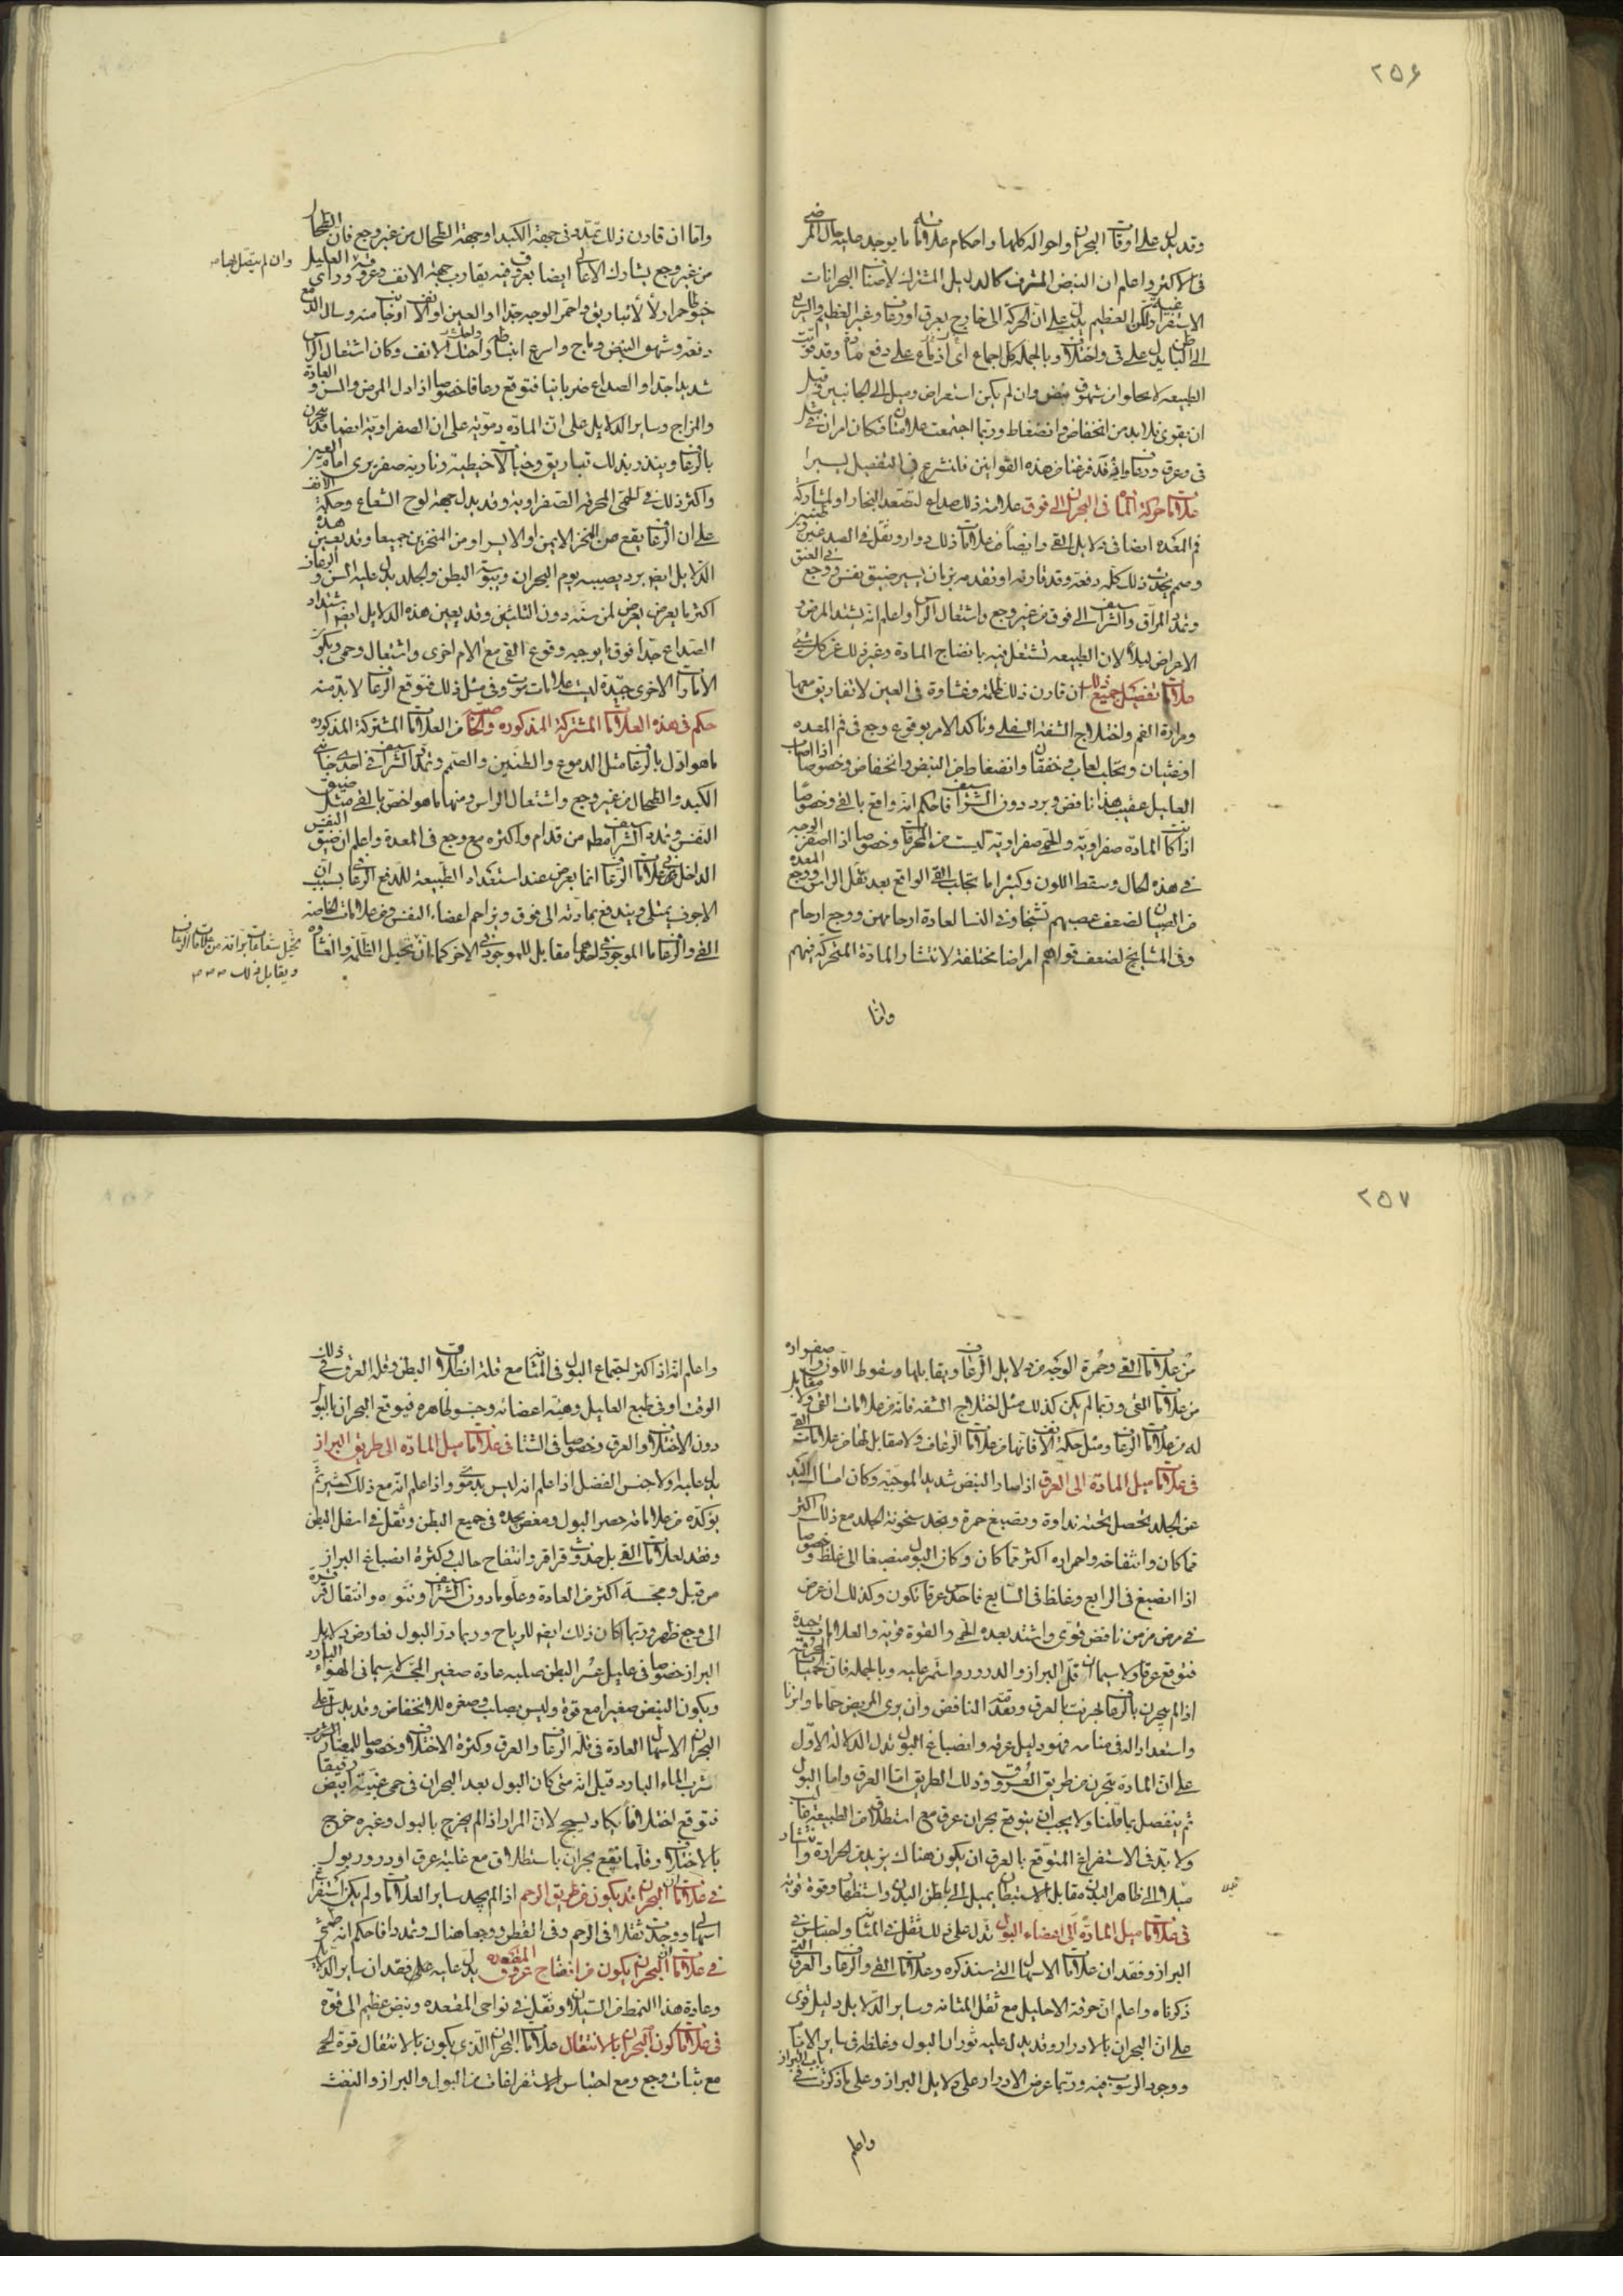 ٢٥٦
وقد يدل على اوقات البحران واحواله كلها واحكام علاماته ما يوجد عليه حال المرضى
فى الاكثر واعلم ان النبض المشرف كالدليل المشترك لاصناف البحرانات
الاستفراغية ولكن العظيم يدل على ان الحركة الى خارج بعرق او رعاف وغير العظيم والسريع
الى الباطن يدل على قى واختلاف وبالجملة كل اجماع اى ازماع على دفع مادة وقد قويت
الطبيعه لا يخلوا من شهوق نبض وان لم يكن استعراض وميل الى الجانبين قبل
ان يقوى فلا بد من انخفاض وانضغاط وربما اجتمعت علامتان فكان امران مثل
قى وعرق ورعاف واذ قد فرغنا من هذه القوانين فلنشرع فى التفصيل يسيرا
علامات حركة المادة فى البحران الى فوق علامته ذلك صداع لتصعد البخار او لمشاركة
فم المعده ايضا فى دلايل القى وايضا من علامات ذلك دوار وثقل فى الصدغين وطنين
وصمم يحدث ذلك كله دفعة وقد قارنه او تقدمه بزمان يسير ضيق نفس ووجع فى العنق
وتمدد المراق والشراسيف الى فوق من غير وجع واشتعال الراس واعلم انه يشتد المرض و
الامراض ليلا لان الطبيعه تشتغل فيه بانضاج المادة وغير ذلك عن كل شى
علامات تفصيل جميع ذلك ان قارن ذلك ظلمة وغشاوة فى العين لا تباريق معها
ومرارة الفم واختلاج الشفة السفلى وتاكد الامر بوقوع وجع فى فم المعده
او غثيان وتحلب لعاب وخفقان وانضغاط من النبض وانخفاض وخصوصا اذا اصاب
العليل عقيب هذا نافض وبرد دون الشراسيف فاحكم انه واقع بالقى وخصوصا
اذا كانت المادة صفراوية والحمى صفراوية ليست من المحرقات وخصوصا اذا اصفر الوجه
فى هذه الحال وسقط اللون وكثيرا ما يجلب القى الواقع بعد ثقل الراس ووجع المعده
فى الصبيان لضعف عصبهم تشنجا وفى النسا لعادة ارحامهن ووجع ارحام
وفى المشايخ لضعف قواهم امراضا مختلفة لانتشار المادة المتحركة فيهم
واما
واما ان قارن ذلك تمدد فى جهة الكبد او جهة الطحال من غير وجع فان الطحال
من غير وجع يشارك الاعالى ايضا بعروق فيه تقارب جهة الانف وعروقه وراى العليل
خيوطا حمرا ولألئ وتباريق واحمر الوجه جدا او العين او الانف او جانب منه وسال الدمع
دفعة وشهق النبض وماج واسرع انبساطه واحتك الانف وكان اشتعال الراس
شديدا جدا والصداع ضربانيا فتوقع رعافا خصوصا اذا دل المرض والسن والعادة
والمزاج وساير الدلايل على ان المادة دموية على ان الصفراوية ايضا قد تبحرن
بالرعاف وينذر بذلك تباريق وخيالات خيطية ونارية صفر يرى امام العين
واكثر ذلك فى الحمى المحرقة الصفراوية وقد يدل جهة لوح الشعاع وحكة الانف
على ان الرعاف يقع من المنخر الايمن او الايسر او من المنخرين جميعا وقد يعين هذه
الدلايل ايضا برد يصيبه يوم البحران ويبوسة البطن والجلد يدل عليه السن و الرعاف
اكثر ما يعرض يعرض لمن سنه دون الثلثين وقد يعين هذه الدلايل ايضا اشتداد
الصداع جدا فوق ما يوجبه وقوع القى مع الام اخرى واشتعال وحمى ويكون
الامارات الاخرى جيدة ليست علامات موت وفى مثل ذلك فتوقع الرعاف لا بد منه
حكم فى هذه العلامات المشتركة المذكوره والخاصة من العلامات المشتركة المذكوره
ما هو ادل بالرعاف مثل الدموع والطنين والصمم وتمدد الشراسيف فى احدى جانبى
الكبد والطحال من غير وجع واشتعال الراس ومنها ما هو اخص بالقى مثل ضيق
النفس وتمدد الشراسيف مطلقا من قدام واكثره مع وجع فى المعدة واعلم ان ضيق النفس
الداخل فى علامات الرعاف انما يعرض عند استعداد الطبيعة للدفع الرعافى بسبب ان
الاجوف يمتلى ويندفع بمادته الى فوق ويزاحم اعضاء النفس ومن علامات الخاصة
القى والرعاف ما الموجود فى احدهما مقابل للموجود فى الاخر كما ان تخيل الظلمة والغشاوة
وان لم يتصل بها
تخيل شعاعات براقة من علامات الرعاف
ويقابل ذلك
٢٥٧
من علامات القى وحمرة الوجه من دلايل الرعاف ويقابلها وسقوط اللون و صفراره
من علامات القى وربما لم يكن كذلك مثل اختلاج الشفه فانه من علامات القى ولا مقابل
له من علامات الرعاف ومثل حكة الانف فانها من علامات الرعاف ولا مقابل لها من علامات القى
فى علامات ميل المادة الى العرق اذا صار النبض شديد الموجية وكان امساك اليد
عن الجلد يحصل تحته نداوة ويصبغ حمرة وتجد سخونة الجلد مع ذلك اكثر
مما كان وانتفاخه واحمراره اكثر مما كان وكان البول منصبغا الى غلظ وخصوصا
اذا انصبغ فى الرابع وغلظ فى السابع فاحدس عرقا تكون وكذلك ان عرض
فى مرض مزمن نافض قوى واشتد بعده الحمى والقوة قوية والعلامات جيدة
فتوقع عرقا ولا سيما ان قل البراز والدرور واستمر عليه وبالجملة فان الحميات المحرقة
اذا لم يبحرن بالرعاف بحرنت بالعرق وتقدمه النافض وان يرى المريض حماما وابزنا
واستعدادا له فى منامه فهو دليل عرق وانصباغ البول يدل الدلالة الاول
على ان المادة تبحرن من طريق العروق وذلك الطريق اما العرق واما البول
ثم ينفصل بما قلنا ولا يجب ان يتوقع بحران عرق مع استطلاق من الطبيعة غالب
ولا بد فى الاستفراغ المتوقع بالعرق ان يكون هناك يزيد من الحرارة وانتشار
ميلا الى ظاهر البدن مقابل الاستبطان يميل الى باطن البدن واستظهار وقوة قوية
فى علامات ميل المادة الى اعضاء البول تدل على ذلك ثقل فى المثانة واحتباس فى
البراز وفقدان علامات الاسهال التى سنذكره وعلامات القى والرعاف والعرق التى
ذكرناه واعلم ان حرقة الاحليل مع ثقل المثانه وساير الدلايل دليل قوى
على ان البحران بالادرار وقد يدل عليه ثوران البول وغلظه فى ساير الايام
ووجود الرسوب فيه وربما عرض الادرار على دلايل البراز وعلى ما ذكرت فى باب البراز
واعلم
واعلم انه اذا كثر اجتماع البول فى المثانة مع قلة انطلاق البطن وقلة العرق فى ذلك
الوقت او فى طبع العليل وهيئة اعضائه وحبس ظاهره فيوقع البحران بالبول
دون الاختلاف والعرق وخصوصا فى الشتا فى علامات ميل المادة الى طريق البراز
يدل عليه اولا جنس الفضل اذا علم انه ليس بدموى واذا علم انه مع ذلك كثير ثم
يوكده من علاماته حصر البول ومغص يجده فى جميع البطن وثقل فى اسفل البطن
وفقد لعلامات القى بل حدوث قراقر وانتفاخ حالب وكثرة انصباغ البراز
من قبل ومجسة اكثر من العادة وعلو ما دون الشراسيف ونتوه وانتقال قرقرة
الى وجع ظهر وربما كان ذلك ايضا للرياح وربما در البول فعارض دلايل
البراز خصوصا فى عليل عسر البطن صلبه عادة صغير المجسة لا سيما فى الهواء البارد
ويكون النبض صغيرا مع قوة وليس بصلب وصغره للانخفاض وقد يدل على
البحران الاسهال العادة فى قلة الرعاف والعرق وكثرة الاختلاف وخصوصا للمعتاد شرب
شرب الماء البارد قيل انه متى كان البول بعد البحران فى حمى غبية ابيض رقيقا
فتوقع اختلافا يكاد يسحج لان المرار اذا لم يخرج بالبول وغيره خرج
بالاختلاف وقلما يقع بحران باستطلاق مع غلبة عرق او درور بول
فى علامات ان البحران قد يكون من طريق الرحم اذا لم يجد ساير العلامات ولم يكن استفراغ
اسهالى ووجدت ثقلا فى الرحم وفى القطن ووجعا هناك وتمددا فاحكم انه طمث
فى علامات ان البحران يكون من انفتاح عروق المقعده يدل عليه على فقدان ساير الدلايل
وعادة هذا النمط من السيلان وثقل فى نواحى المقعده ونبض عظيم الى قوة
فى علامات كون البحران بالانتقال علامات البحران الذى يكون بالانتقال قوة الحمى
مع ثبات وجع ومع احتباس الاستفراغات من البول والبراز والنفث